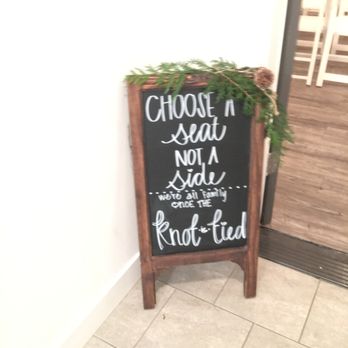 CHOOSE A
seat
NOT A
side
we're all family
ONCE THE
knot is tied